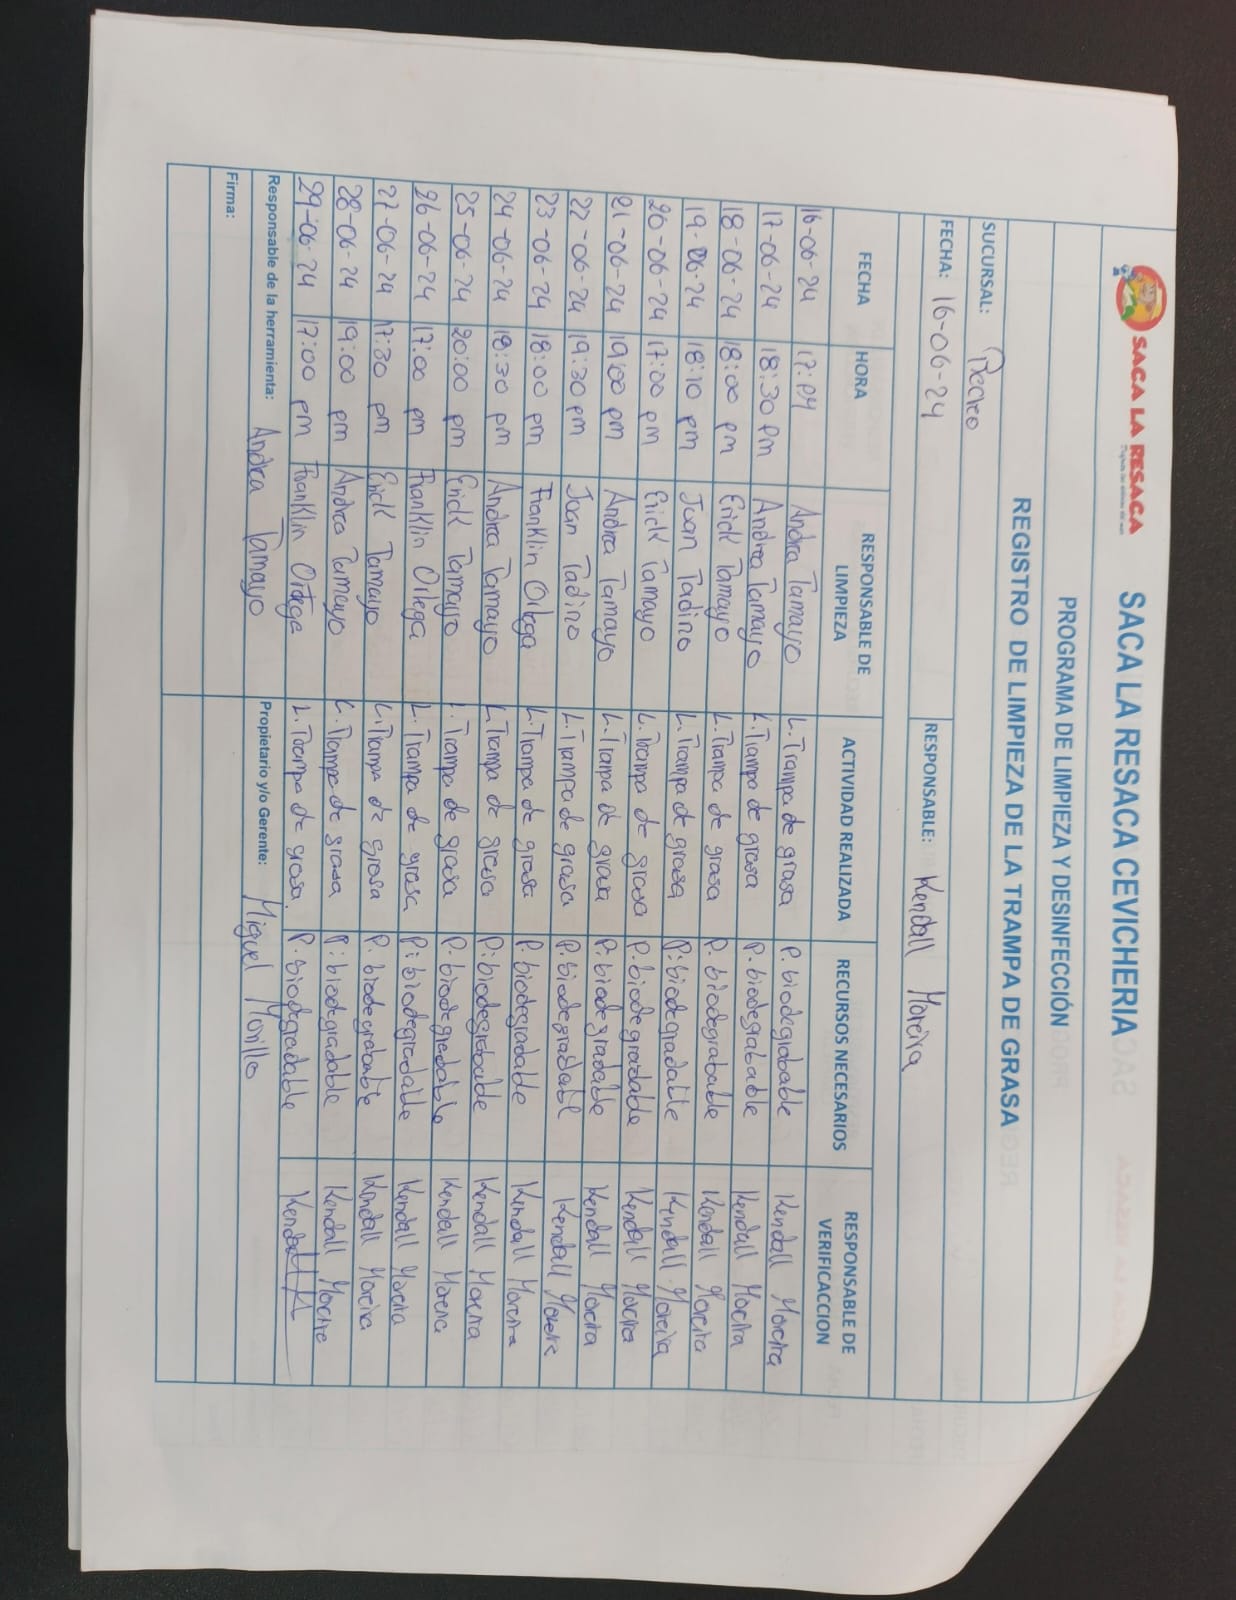 SACA LA RESACA
SACA LA RESACA CEVICHERIA
PROGRAMA DE LIMPIEZA Y DESINFECCIÓN
REGISTRO DE LIMPIEZA DE LA TRAMPA DE GRASA
SUCURSAL: Recreo
FECHA: 16-06-24 RESPONSABLE: Kendall Moreira
FECHA HORA RESPONSABLE DE LIMPIEZA ACTIVIDAD REALIZADA RECURSOS NECESARIOS RESPONSABLE DE VERIFICACCION
16-06-24 17:PM Andrea Tamayo L. Trampa de grasa P. biodegrabable Kendall Moreira
17-06-24 18:30 Pm Andrea Tamayo L. Trampa de grasa P. biodegrabable Kendall Moreira
18-06-24 18:00 pm Erick Tamayo L. Trampa de grasa P. biodegrabable Kendall Moreira
19-06-24 18:10 pm Juan Tadino L. Trampa de grasa P: biodegradable Kendall Moreira
20-06-24 17:00 pm Erick Tamayo L. Trampa de grasa P. biodegradable Kendall Moreira
21-06-24 19:00 pm Andrea Tamayo L. Trampa de grasa P. biodegradable Kendall Moreira
22-06-24 19:30 pm Juan Tadino L. Trampa de grasa P. biodegradabl Kendall Moreira
23-06-24 18:00 pm Franklin Ortega L. Trampa de grasa P. biodegradable Kendall Moreira
24-06-24 18:30 pm Andrea Tamayo L. Trampa de grasa P: biodegradable Kendall Moreira
25-06-24 20:00 pm Erick Tamayo L. Trampa de grasa P. biodegradable Kendall Moreira
26-06-24 17:00 pm Franklin Ortega L. Trampa de grasa P: biodegradable Kendall Moreira
27-06-24 17:30 pm Erick Tamayo L. Trampa de grasa P. Kendall Moreira
28-06-24 19:00 pm Andrea Tamayo L. Trampa de grasa P: biodegradable Kendall Moreira
29-06-24 17:00 pm Franklin Ortega L. Trampa de grasa. P. biodegradable
Responsable de la herramienta: Andrea Tamayo Propietario y/o Gerente: Miguel Morillo
Firma: